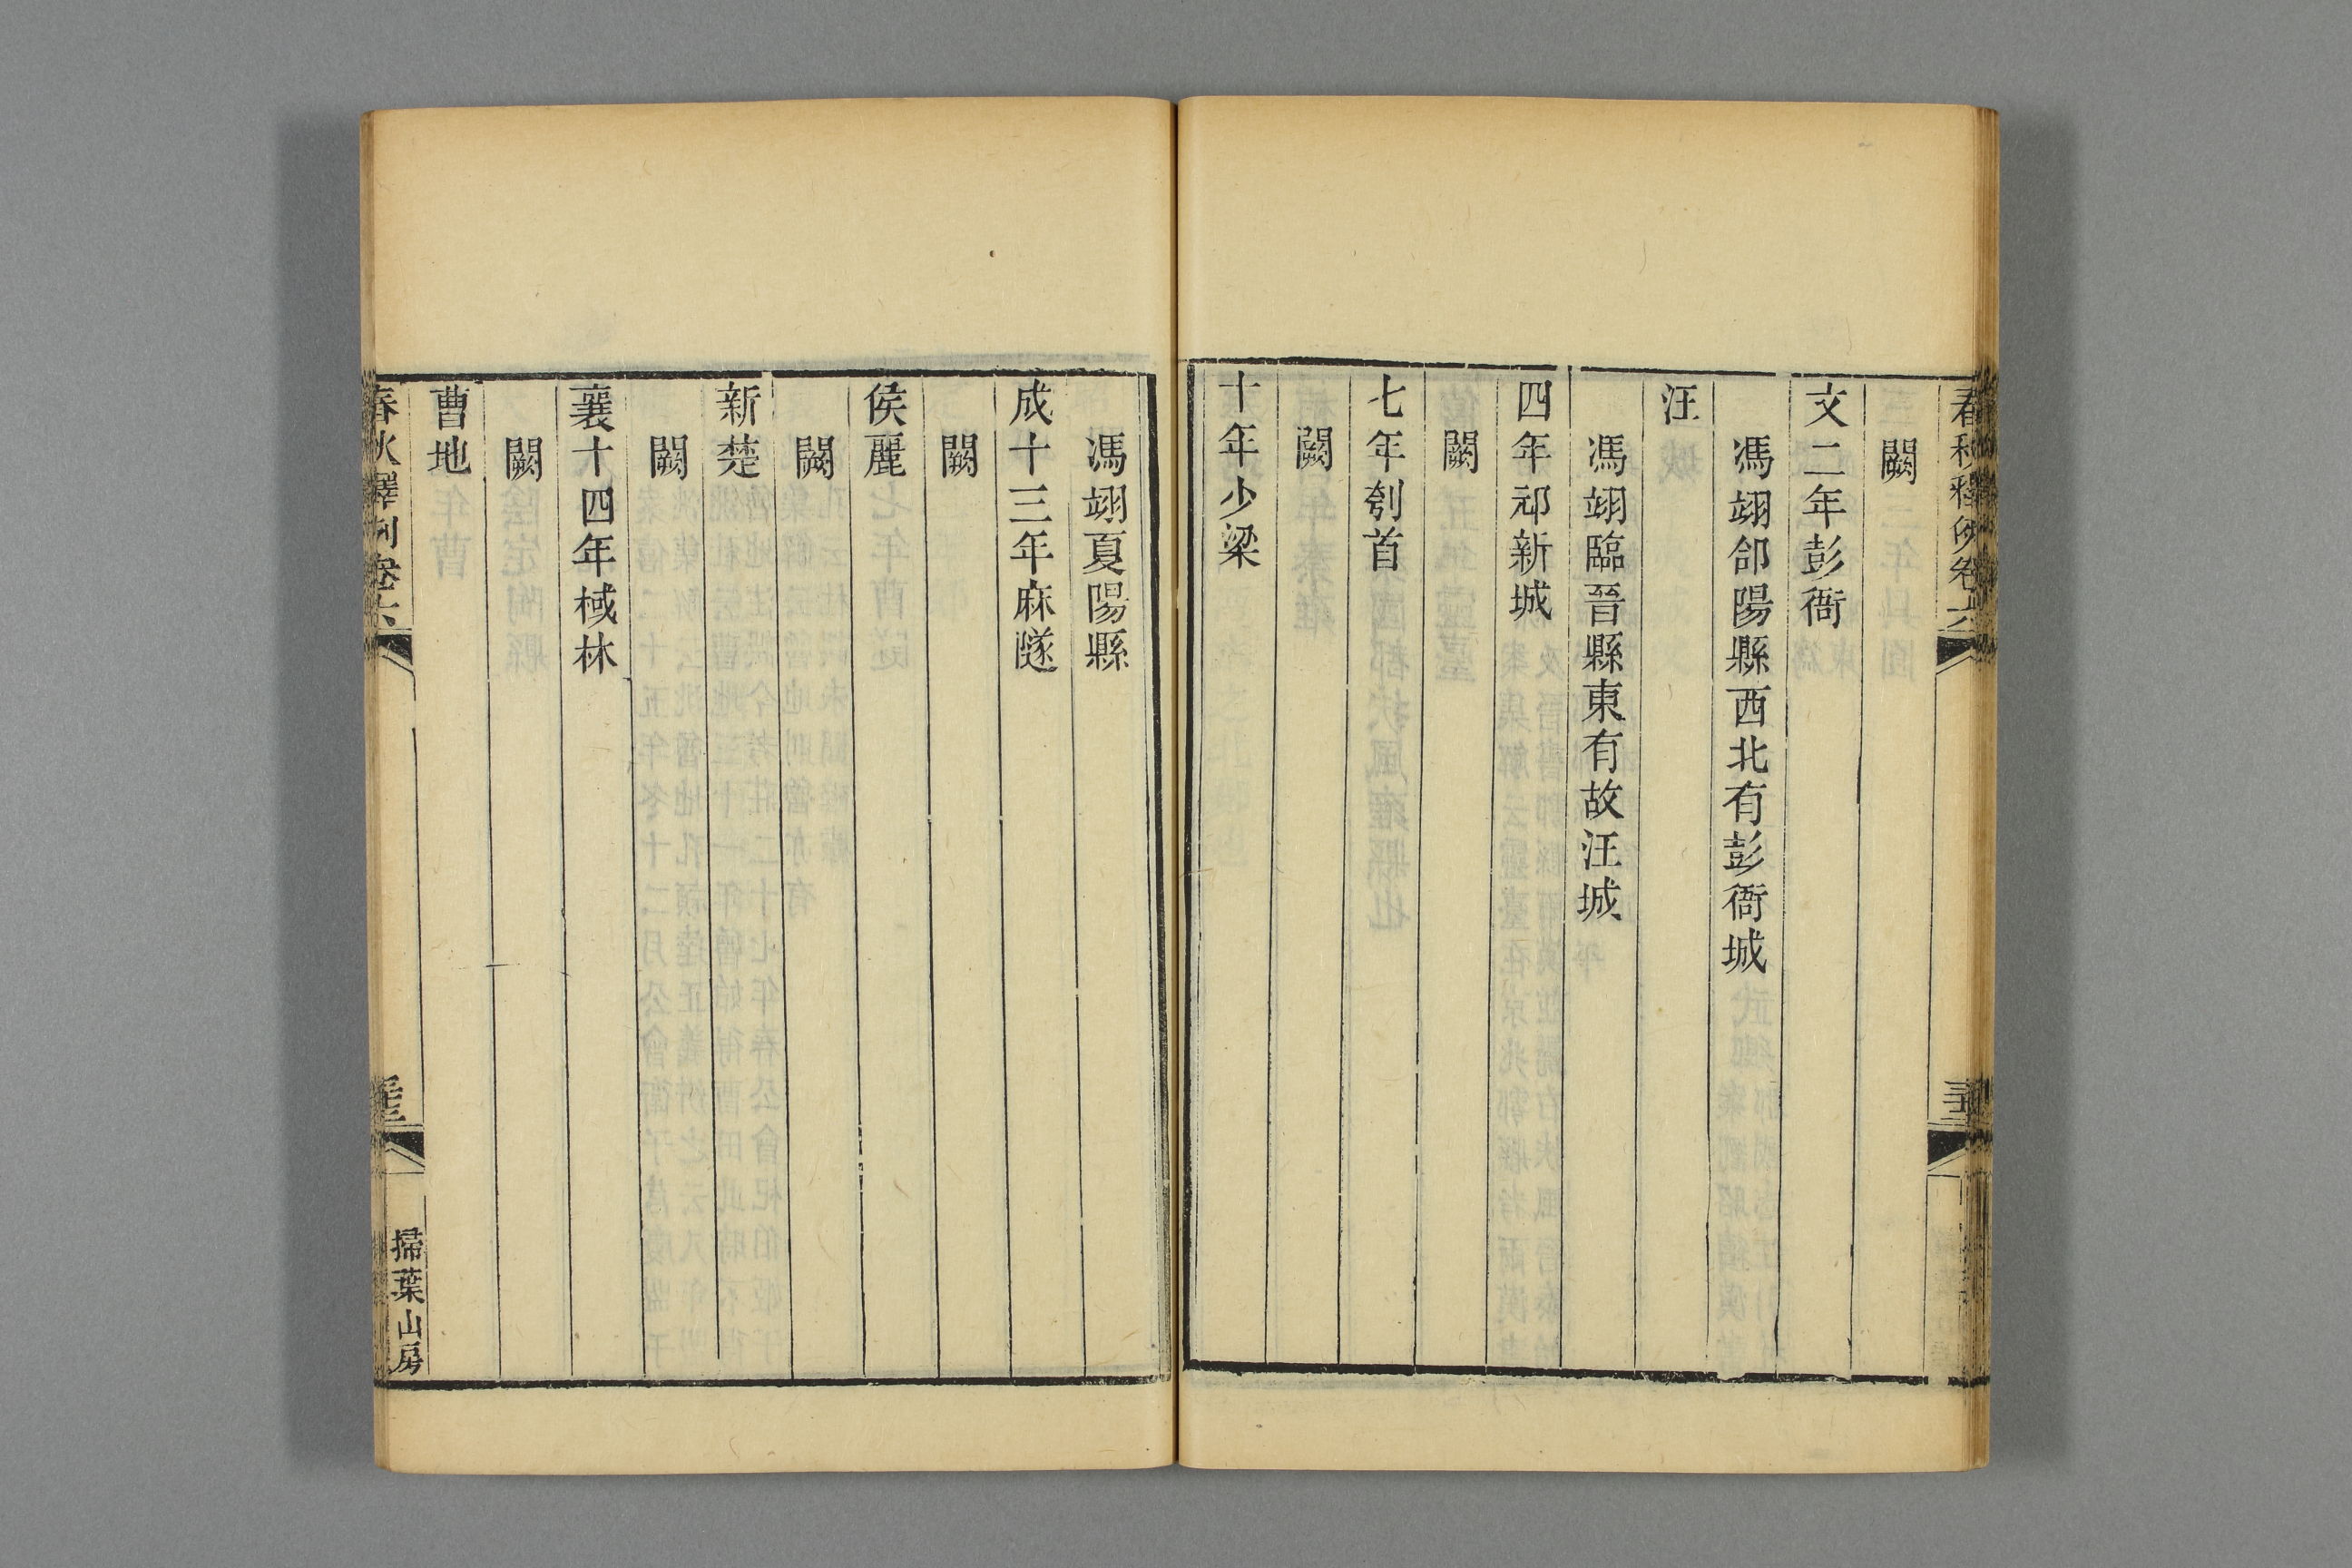 春秋釋例卷六
闕
文二年彭衙
馮翊郃陽縣西北有彭衙城
汪
馮翊臨晉縣東有故汪城
四年邧新城
闕
七年刳首
闕
十年少梁
馮翊夏陽縣
成十三年麻隧
闕
侯麗
闕
新楚
闕
襄十四年棫林
闕
曹地
春秋釋例卷六
掃葉山房